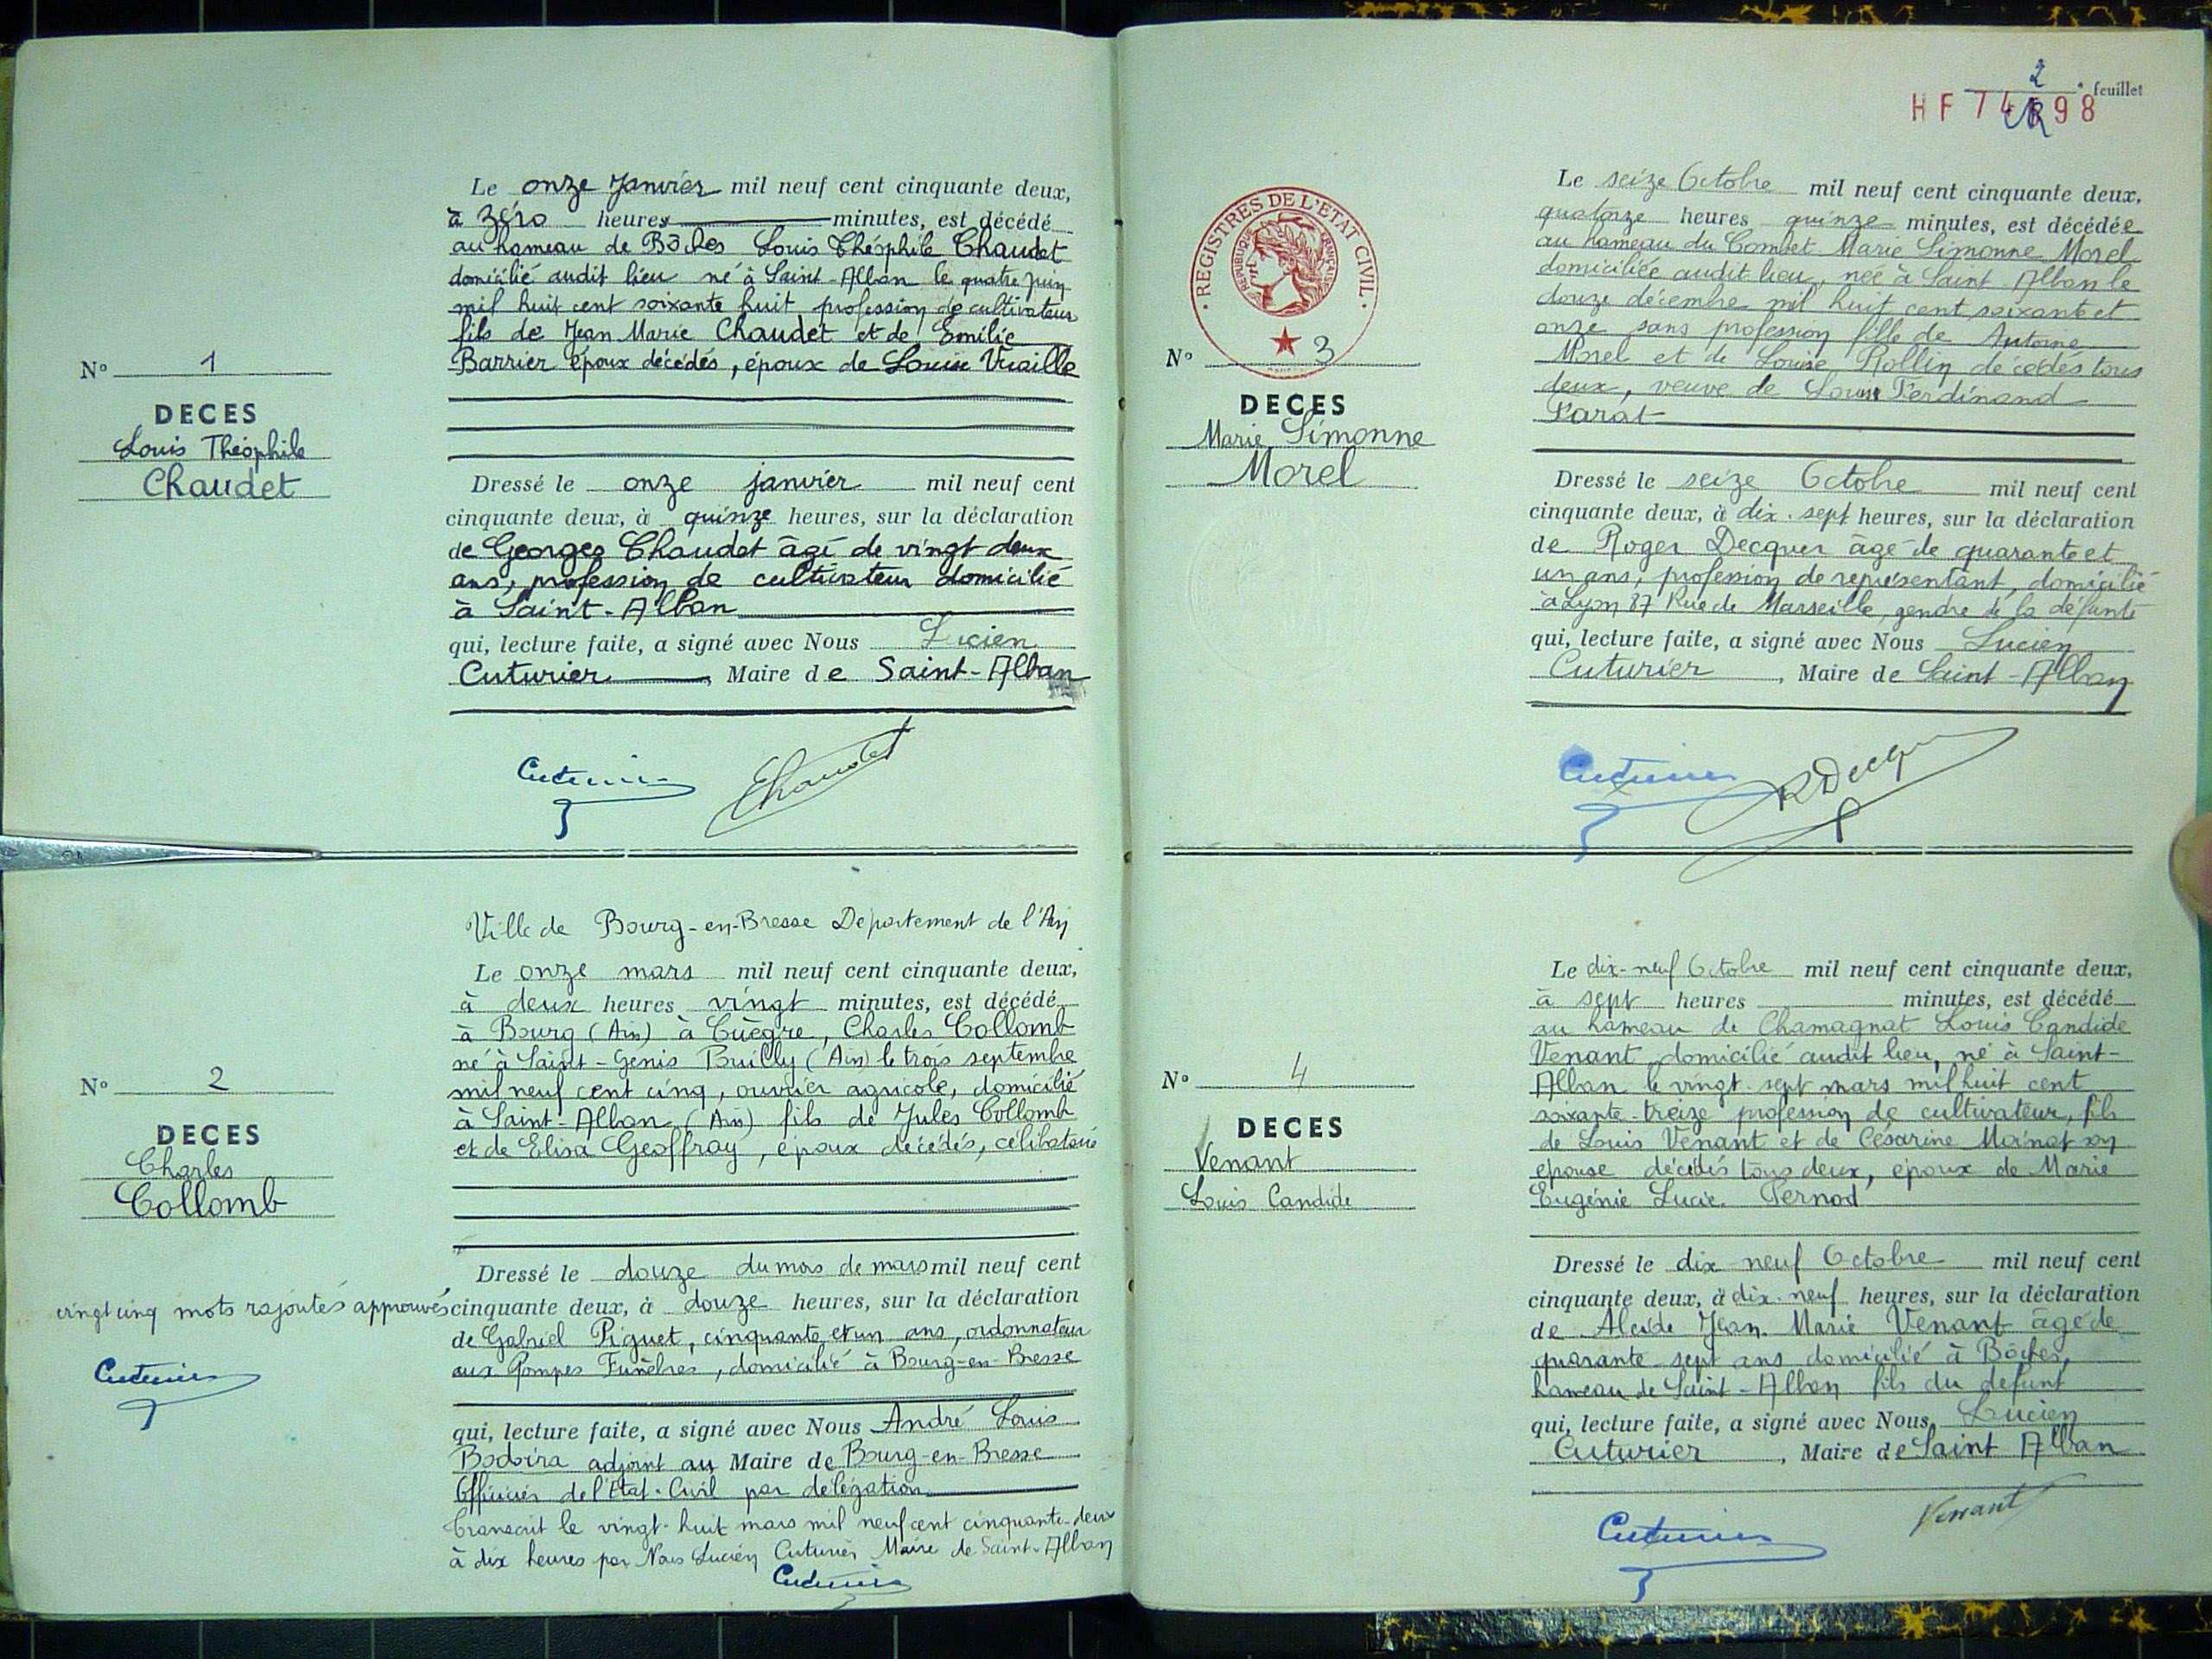 Le onze Janvier mil neuf cent cinquante deux,
à zéro heures minutes, est décédé
au hameau de Bôches Louis Théophile Chaudet
domicilié audit lieu né à Saint-Alban le quatre juin
mil huit cent soixante huit profession de cultivateur
fils de Jean Marie Chaudet et de Emilie
Barrier époux décédés, époux de Louise Vuaille
N° 1
DECES
Louis Théophile
Chaudet
Dressé le onze janvier mil neuf cent
cinquante deux, à quinze heures, sur la déclaration
de Georges Chaudet âgé de vingt deux
ans, profession de cultivateur domicilié
à Saint-Alban
qui, lecture faite, a signé avec Nous Lucien
Cuturier, Maire de Saint-Alban
Cuturier Chaudet
Ville de Bourg-en-Bresse Département de l'Ain
Le onze mars mil neuf cent cinquante deux,
à deux heures vingt minutes, est décédé
à Bourg (Ain) à Cuègre, Charles Collomb
né à Saint-Genis Pouilly (Ain) le trois septembre
mil neuf cent cinq, ouvrier agricole, domicilié
à Saint-Alban (Ain) fils de Jules Collomb
et de Elisa Geoffray, époux décédés, célibataire
N° 2
DECES
Charles
Collomb
Dressé le douze du mois de mars mil neuf cent
vingt cinq mots rajoutés approuvés
cinquante deux, à douze heures, sur la déclaration
de Gabriel Piguet, cinquante et un ans, ordonnateur
aux Pompes Funèbres, domicilié à Bourg-en-Bresse
Cuturier
qui, lecture faite, a signé avec Nous André Louis
Bodoira adjoint au Maire de Bourg-en-Bresse
Officier de l'Etat-Civil par délégation
Transcrit le vingt-huit mars mil neuf cent cinquante-deux
à dix heures par Nous Lucien Cuturier Maire de Saint-Alban
Cuturier
2
e feuillet
HF 74 98
Le seize Octobre mil neuf cent cinquante deux,
quatorze heures quinze minutes, est décédée
au hameau du Combet Marie Simonne Morel
domiciliée audit lieu, née à Saint Alban le
douze décembre mil huit cent soixante et
onze sans profession fille de Antoine
Morel et de Louise Rollin décédés tous
deux, veuve de Louis Ferdinand
Parat
REGISTRES DE L'ETAT CIVIL
REPUBLIQUE FRANÇAISE
N° 3
DECES
Marie Simonne
Morel
Dressé le seize Octobre mil neuf cent
cinquante deux, à dix-sept heures, sur la déclaration
de Roger Decquer âgé de quarante et
un ans, profession de représentant, domicilié
à Lyon 87 Rue de Marseille, gendre de la défunte
qui, lecture faite, a signé avec Nous Lucien
Cuturier, Maire de Saint-Alban
Cuturier R Decq
Le dix-neuf Octobre mil neuf cent cinquante deux,
à sept heures minutes, est décédé
au hameau de Chamagnat Louis Candide
Venant domicilié audit lieu, né à Saint-
Alban le vingt-sept mars mil huit cent
soixante-treize profession de cultivateur, fils
de Louis Venant et de Césarine son
épouse décédés tous deux, époux de Marie
Eugénie Lucie Pernod
N° 4
DECES
Venant
Louis Candide
Dressé le dix neuf Octobre mil neuf cent
cinquante deux, à dix-neuf heures, sur la déclaration
de Alcide Jean Marie Venant âgé de
quarante-sept ans domicilié à Bôches,
hameau de Saint-Alban fils du défunt
qui, lecture faite, a signé avec Nous, Lucien
Cuturier, Maire de Saint Alban
Cuturier Venant